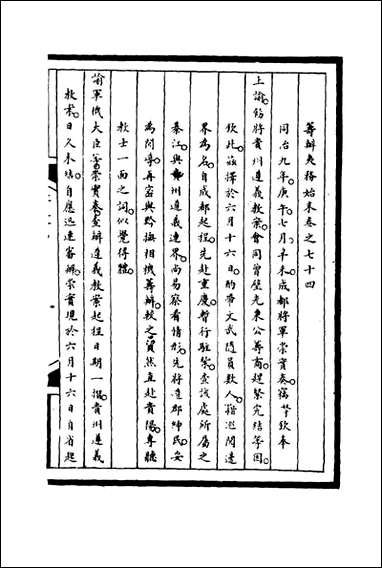 籌辦夷務始末卷之七十四
同治九年庚午七月辛未成都將軍崇實奏竊奴才欽奉
上諭飭將貴州遵義教案會同曾璧光秉公籌商趕緊完結等因
欽此茲擇於六月十六日酌帶文武隨員數人藉巡閱邊
界為名自成都起程先赴重慶暫行駐紮查該處所屬之
綦江與貴州遵義連界尚易察看情形先將遵郡紳民妥
為開導再密與黔撫相機籌辦較之貿然直赴貴陽專聽
教士一面之詞似覺得體
諭軍機大臣等崇實奏查辦遵義教案起程日期一摺貴州遵義
教案日久未結自應迅速審辦崇實現於六月十六日自省起